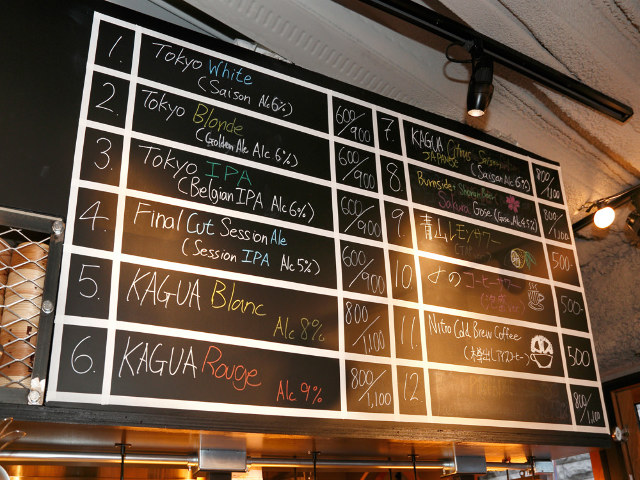 1. Tokyo White
(Saison Alc 6%)
600/900
2. Tokyo Blonde
(Golden Ale Alc 6%)
600/900
3. Tokyo IPA
(Belgian IPA Alc 6%)
600/900
4. Final Cut Session Ale
(Session IPA Alc 5%)
600/900
5. KAGUA Blanc
Alc 8%
800/1,100
6. KAGUA Rouge
Alc 9%
800/1,100
7. KAGUA Citrus
JAPANESE
(Saison Alc 6%)
800/1,100
8. Burnside
Sakura Gose (Gose Alc 4.5%)
800/1,100
9 青山レモンサワー
500-
10 のコーヒーサワー
500-
11. Nitro Cold Brew Coffee
(水出しアイスコーヒー)
500
12
800/1,100